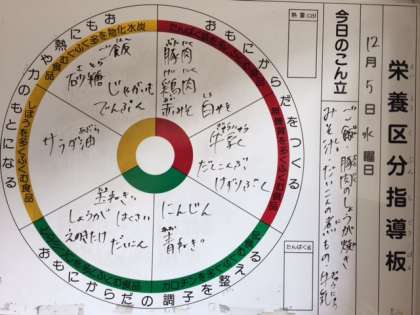 栄養区分指導板
12月5日水曜日
今日のこん立
ご飯 豚肉のしょうが焼き
みそ汁 だいこんの煮もの 牛乳
熱量
たんぱく質
おもにからだをつくる
おもに力や熱のもとになる
おもにからだの調子を整える
ご飯
さとう
砂糖
じゃがいも
でんぷん
あぶら
サラダ油
ぶたにく
豚肉
とりにく
鶏肉
赤みそ 白みそ
ぎゅうにゅう
牛乳
だしこんぶ
けずりぶし
玉ねぎ
しょうが はくさい
えのきたけ だいこん
にんじん
青ねぎ